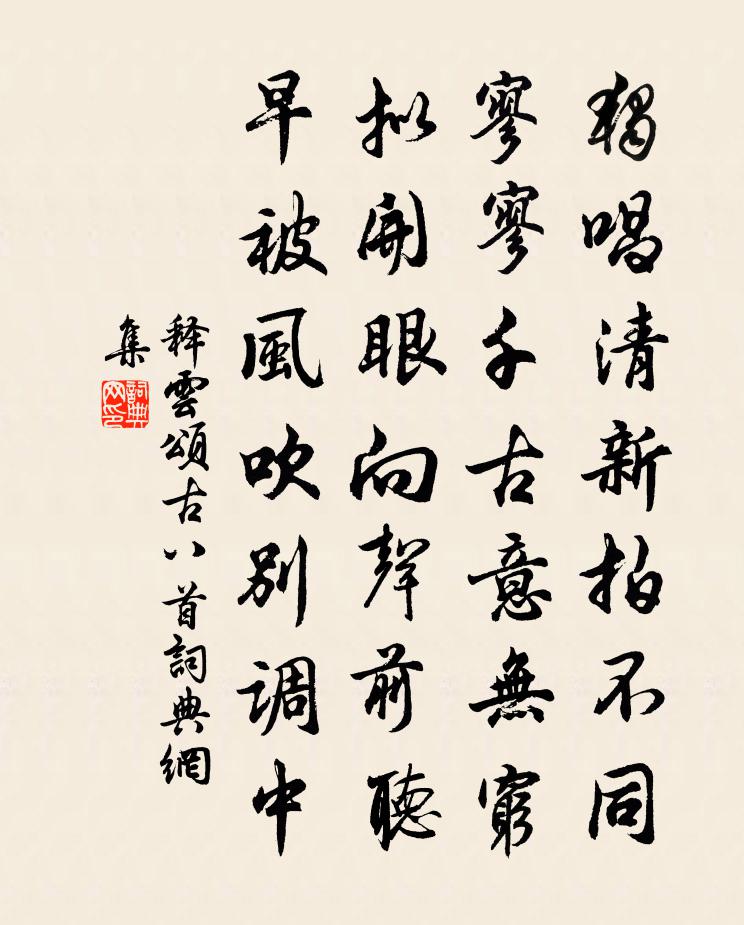 獨唱清新拍不同
寥寥千古意無窮
拟開眼向聲前聽
早被風吹別調中
释雲頌古八首詞典網
集
詞典
网印